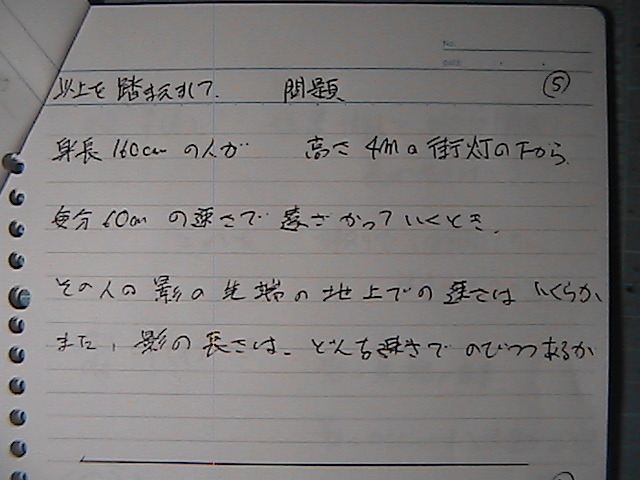 No.
DATE
以上を踏まえまして. 問題 ⑤
身長160cmの人が 高さ4mの街灯の下から
毎分60mの速さで遠ざかっていくとき,
その人の影の先端の地上での速さはいくらか
また,影の長さは、どんな速さでのびつつあるか